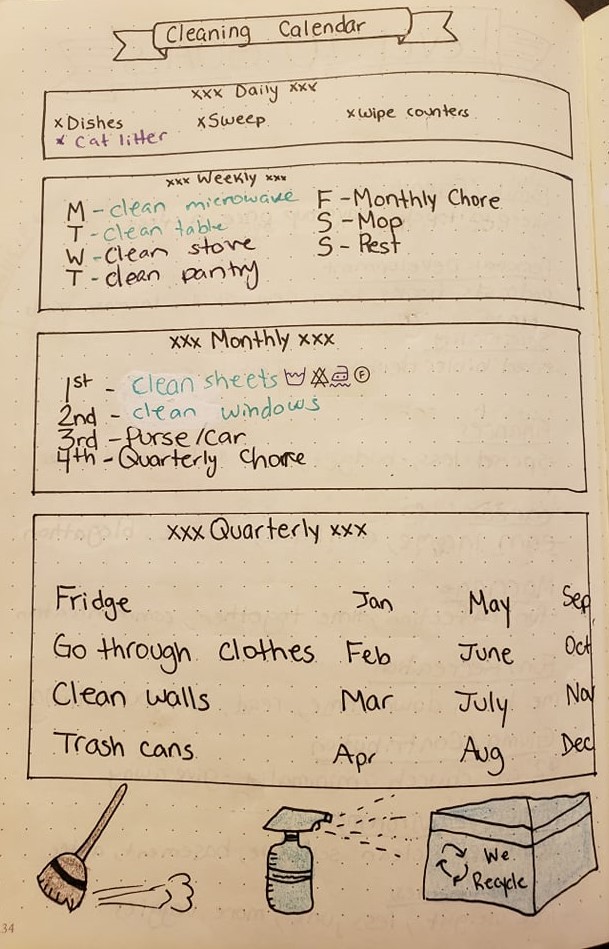 Cleaning Calendar
xxx Daily xxx
x Dishes x Sweep x Wipe counters
x Cat litter
xxx Weekly xxx
M - clean microwave F - Monthly Chore
T - clean table S - Mop
W - Clean stove S - Rest
T - clean pantry
xxx Monthly xxx
1st - clean sheets F
2nd - clean windows
3rd - Purse/car
4th - Quarterly Chore
xxx Quarterly xxx
Fridge Jan May Sep
Go through clothes Feb June Oct
Clean walls Mar July Nov
Trash cans Apr Aug Dec
We
Recycle
34